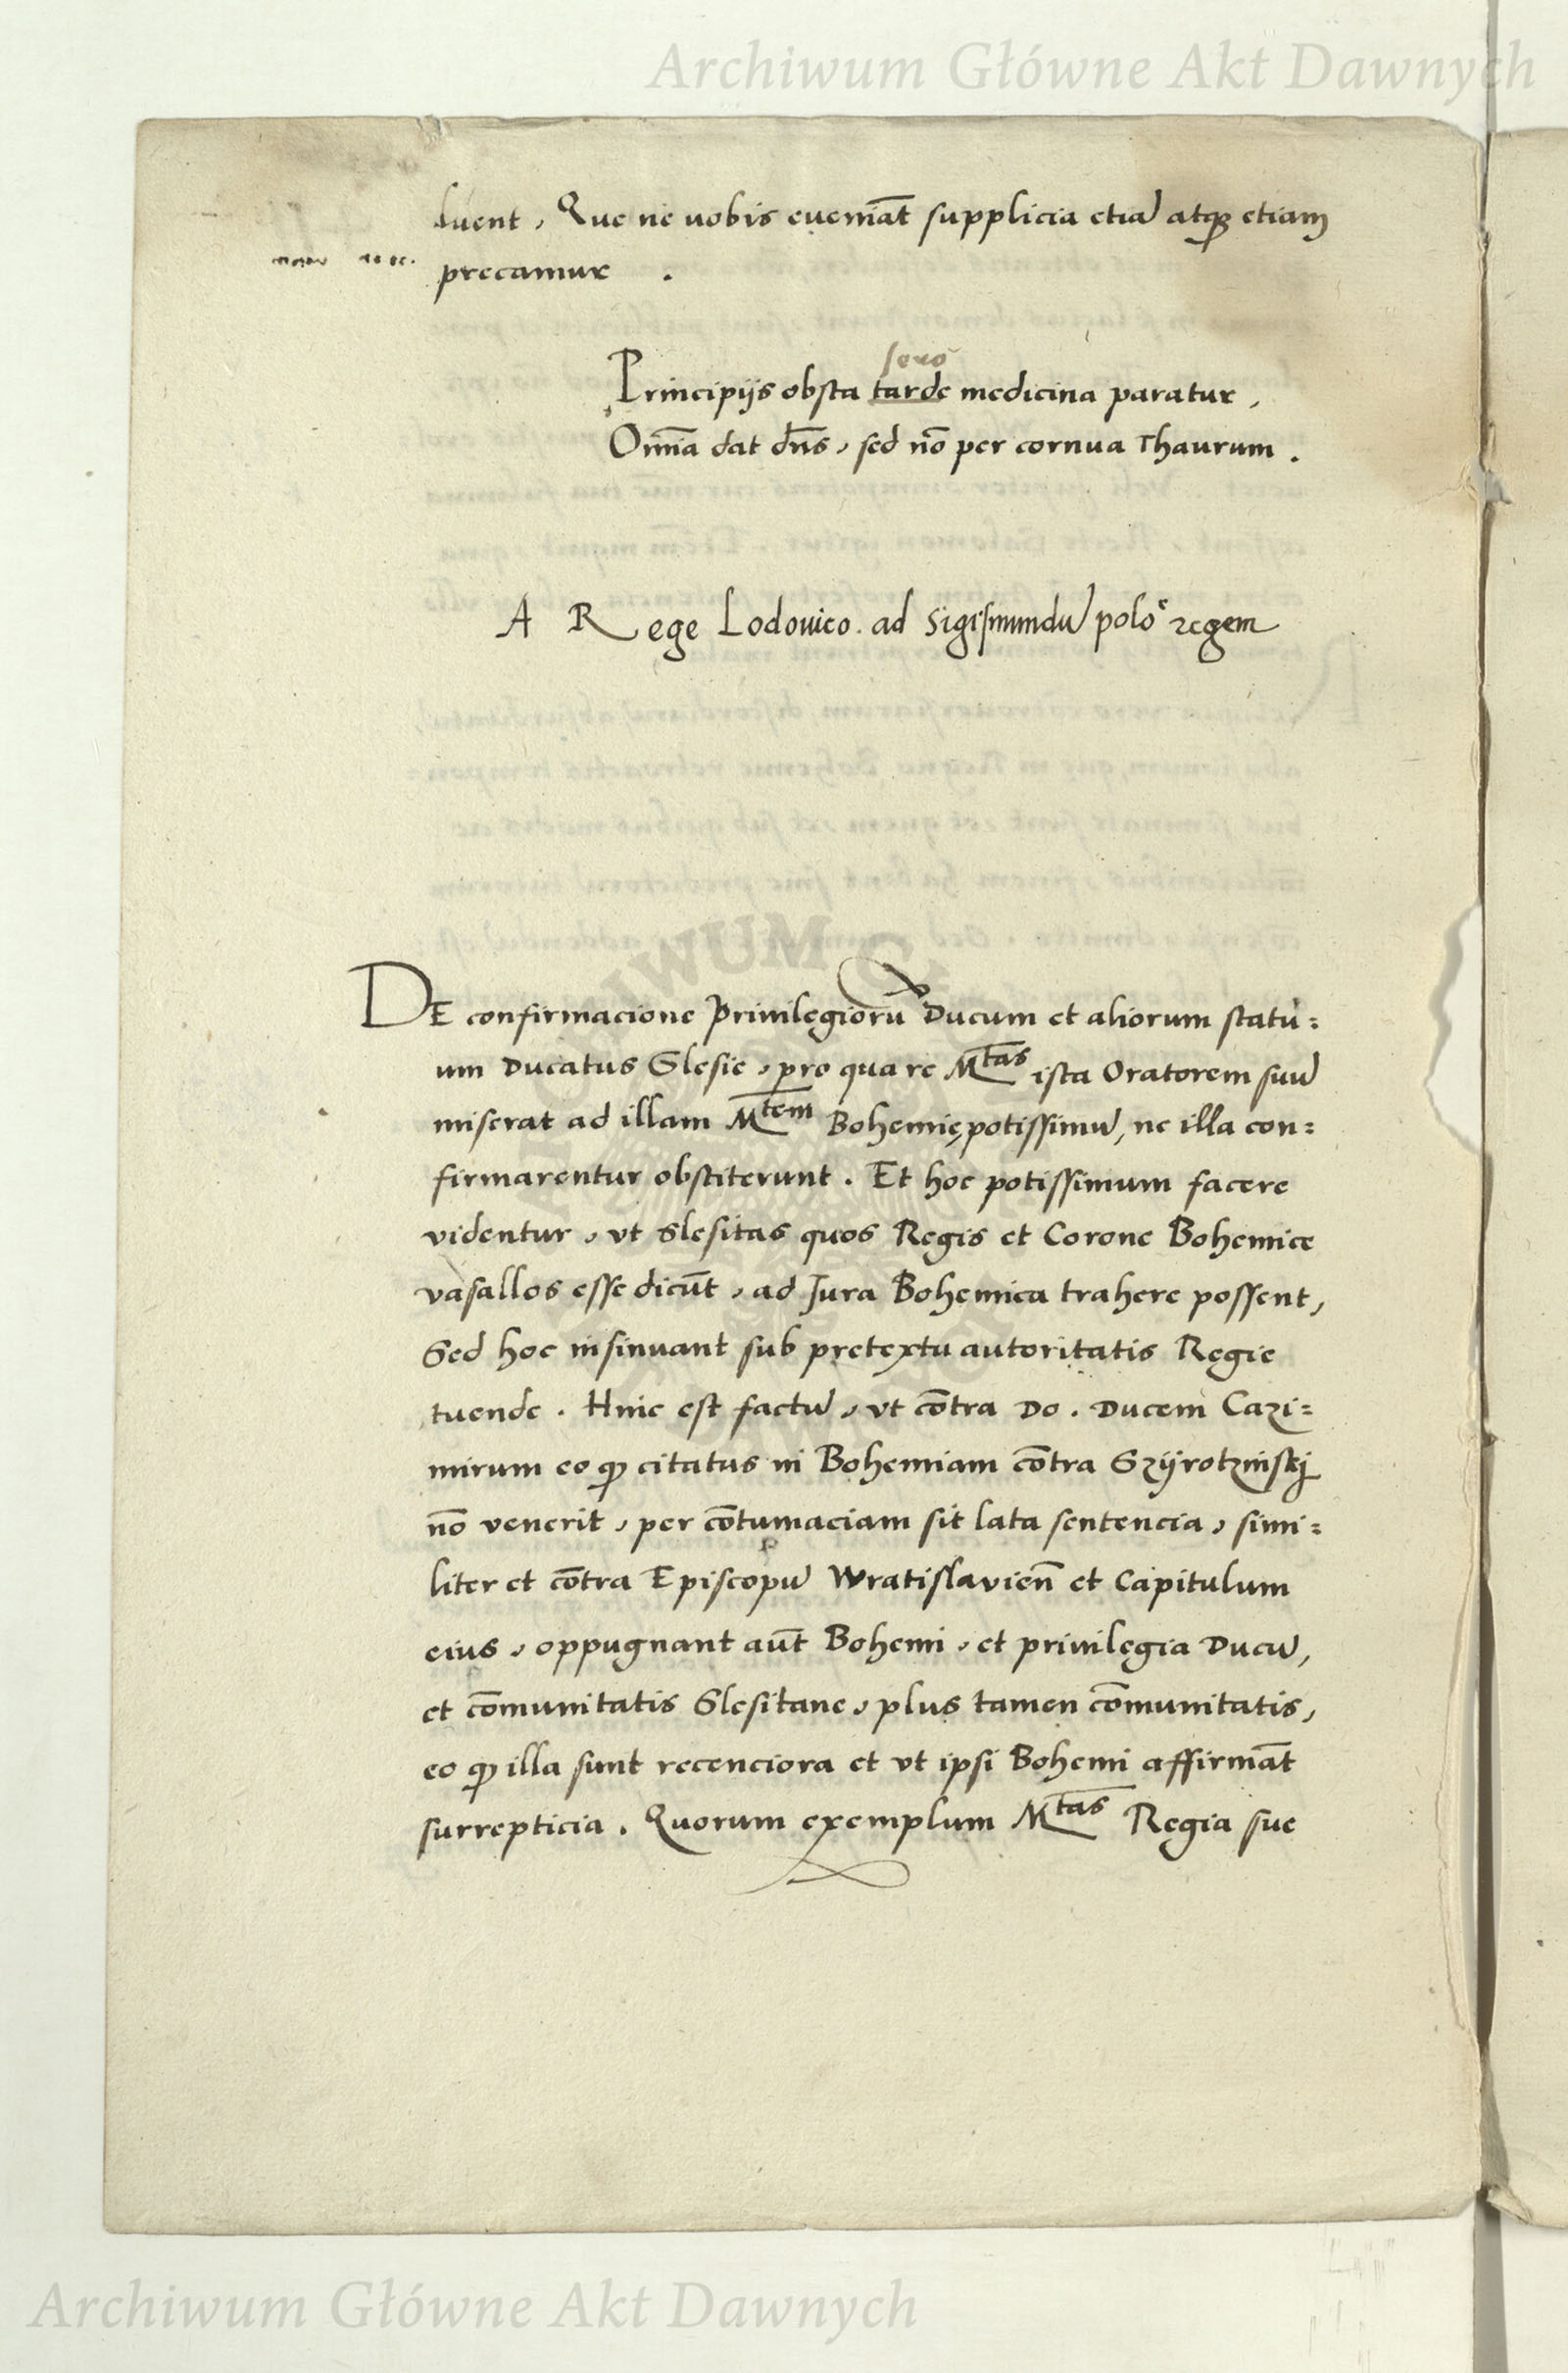 Archiwum Główne Akt Dawnych
luent, Que ne uobis eueniāt supplicia etiā atqꝫ etiam
precamur .
seuo
Principijs obsta tarde medicina paratur,
Omīa dat dn̄s, sed nō per cornua Thaurum .
A Rege Lodouico. ad Sigismundū poloᵉ regem
DE confirmacione Priuilegiorū Ducum et aliorum statu:
um Ducatus Slesie, pro qua re Mᵗᵃˢ ista Oratorem suū
miserat ad illam Mᵗᵉᵐ Bohemię potissimū, ne illa con:
firmarentur obstiterunt . Et hoc potissimum facere
videntur, vt Slesitas quos Regis et Corone Bohemice
vasallos esse dicūt, ad Jura Bohemica trahere possent,
Sed hoc insinuant sub pretextu autoritatis Regie
tuende . Hinc est factū, vt cōtra Do . Ducem Cazi:
mirum eo ꝙ citatus in Bohemiam cōtra Szÿrotzinskj
nō venerit, per cōtumaciam sit lata sentencia, simi:
liter et cōtra Episcopū Wratislavien̄ et Capitulum
eius, oppugnant aūt Bohemi, et priuilegia Ducū,
et cōmunitatis Slesitane, plus tamen cōmunitatis,
eo ꝙ illa sunt recenciora et vt ipsi Bohemi affirmāt
surrepticia . Quorum exemplum Mᵗᵃˢ Regia sue
Archiwum Główne Akt Dawnych